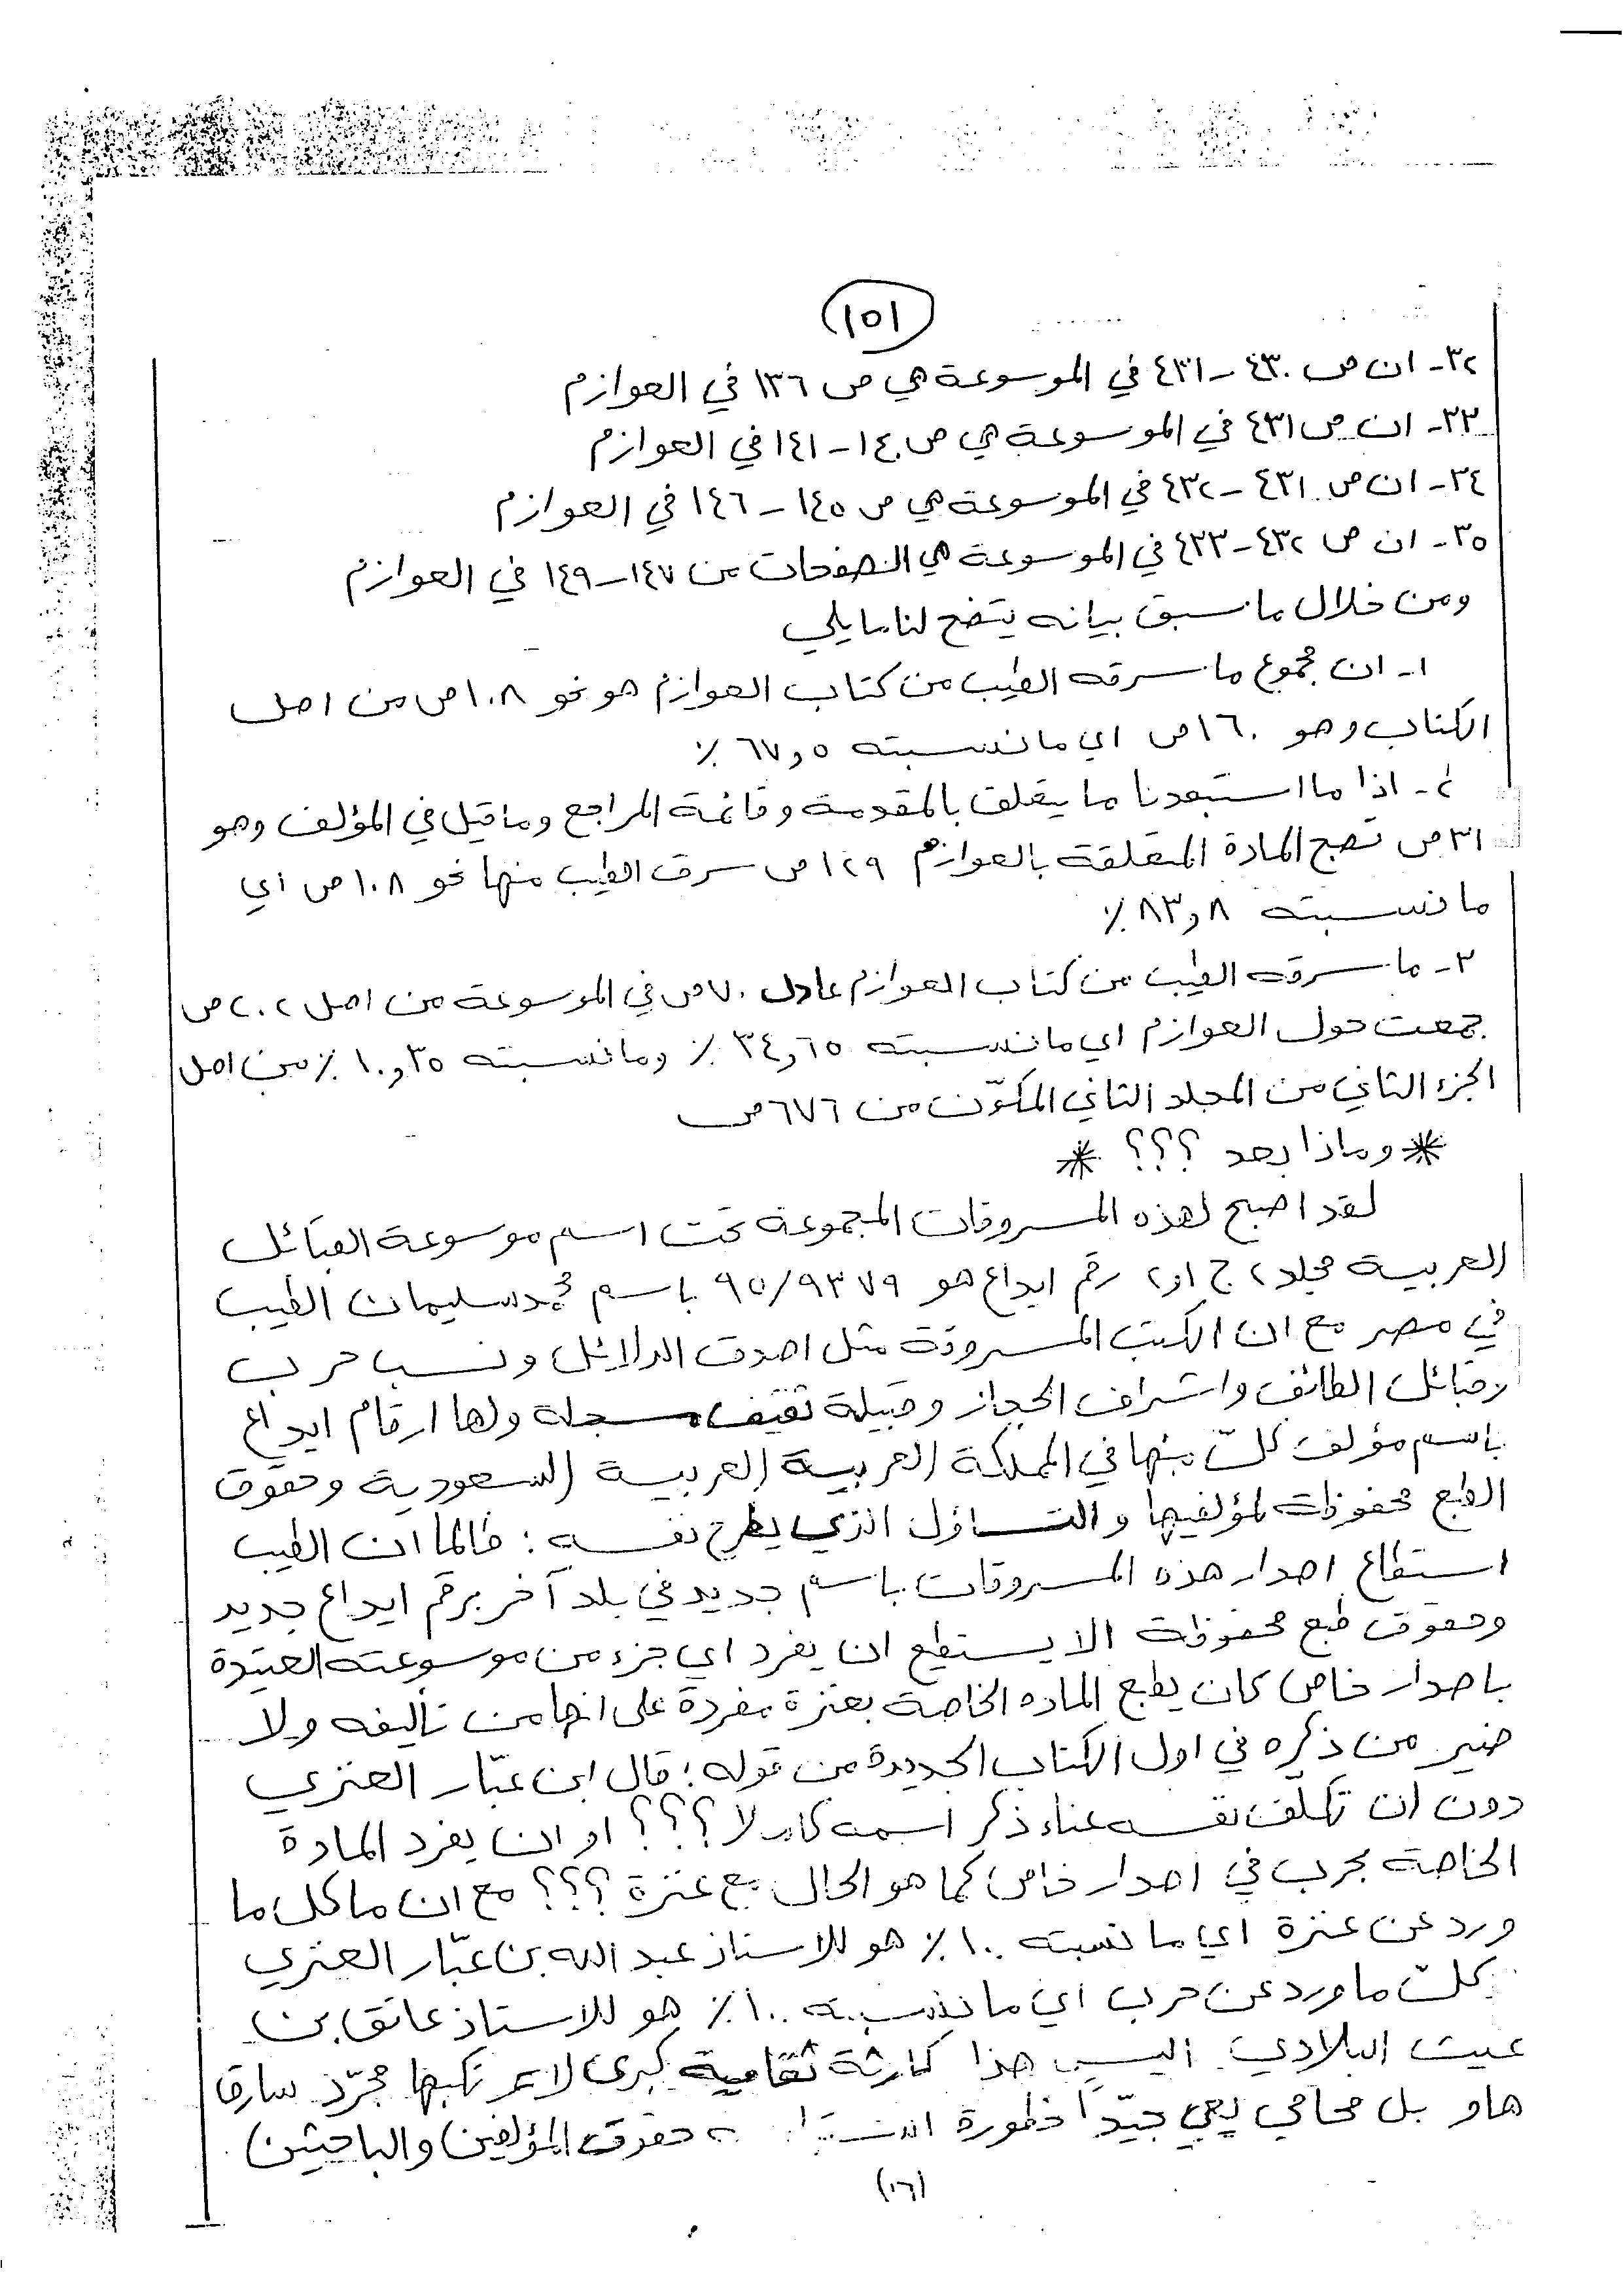 (١٥١)
٣٢ـ ان ص ٤٣٠ـ٤٣١ في الموسوعة هي ص ١٣٦ في العوازم
٣٣ـ ان ص ٤٣١ في الموسوعة هي ص ١٤٠ـ١٤١ في العوازم
٣٤ـ ان ص ٤٣١ـ٤٣٢ في الموسوعة هي ص ١٤٥ـ١٤٦ في العوازم
٣٥ـ ان ص ٤٣٢ـ٤٣٣ في الموسوعة هي الصفحات من ١٤٧ـ١٤٩ في العوازم
ومن خلال ما سبق بيانه يتضح لنا مايلي
١ـ ان مجموع ما سرقه الطيب من كتاب العوازم هو نحو ١٠٨ص من اصل
الكتاب وهو ١٦٠ص اي ما نسبته ٦٧,٥ ٪
٢ـ اذا ما استبعدنا ما يتعلق بالمقدمة وقائمة المراجع وما قيل في المؤلف وهو
٣١ص تصبح المادة المتعلقة بالعوازم ١٢٩ص سرق الطيب منها نحو ١٠٨ص اي
ما نسبته ٨٣,٨ ٪
٣ـ ما سرقه الطيب من كتاب العوازم عادل ٧٠ص في الموسوعة من اصل ٢٠٢ص
جمعت حول العوازم اي ما نسبته ٣٤,٦٥ ٪ وما نسبته ١٠,٣٥ ٪ من اصل
الجزء الثاني من المجلد الثاني المكوّن من ٦٧٦ص
* وماذا بعد ؟؟؟ *
لقد اصبح لهذه المسروقات المجموعة تحت اسم موسوعة القبائل
العربية مجلد ٢ ج ١و٢ رقم ايداع هو ٩٥/٩٣٧٩ باسم محمد سليمان الطيب
في مصر مع ان الكتب المسروقة مثل اصدق الدلائل ونسب حرب
وقبائل الطائف واشراف الحجاز وقبيلة ثقيف مسجلة ولها ارقام ايداع
باسم مؤلف كلّ منها في المملكة العربية العربية السعودية وحقوق
الطبع محفوظة لمؤلفيها والتساؤل الذي يطرح نفسه : طالما ان الطيب
استطاع اصدار هذه المسروقات باسم جديد في بلد آخر برقم ايداع جديد
وحقوق طبع محفوظة الا يستطيع ان يفرد اي جزء من موسوعته العتيدة
باصدار خاص كان يطبع الماده الخاصة بعنزة مفردة على انها من تأليفه ولا
ضير من ذكره في اول الكتاب الجديد من قوله : قال ابن عبّار العنزي
دون ان تكلّف نفسه عناء ذكر اسمه كاملا ؟؟؟ او ان يفرد المادة
الخاصة بحرب في اصدار خاص كما هو الحال مع عنزة ؟؟؟ مع ان ما كل ما
ورد عن عنزة اي ما نسبته ١٠٠ ٪ هو للاستاذ عبد الله بن عبّار العنزي
كلّ ما ورد عن حرب اي ما نسبته ١٠٠ ٪ هو للاستاذ عاتق بن
غيث البلادي اليس هذا كارثة ثقافية كبرى لا يرتكبها مجرّد سارق
هاو بل محامي يعي جيّداً خطورة حقوق المؤلفين والباحثين
(١٦)